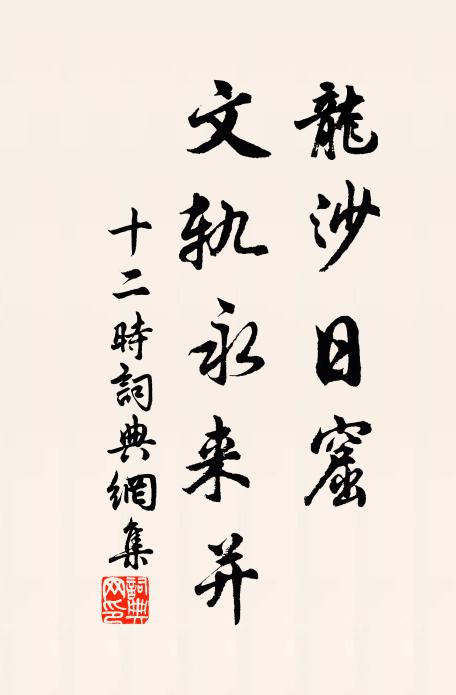 龍沙日窟
文軌永来并
十二時詞典網集
詞典网印